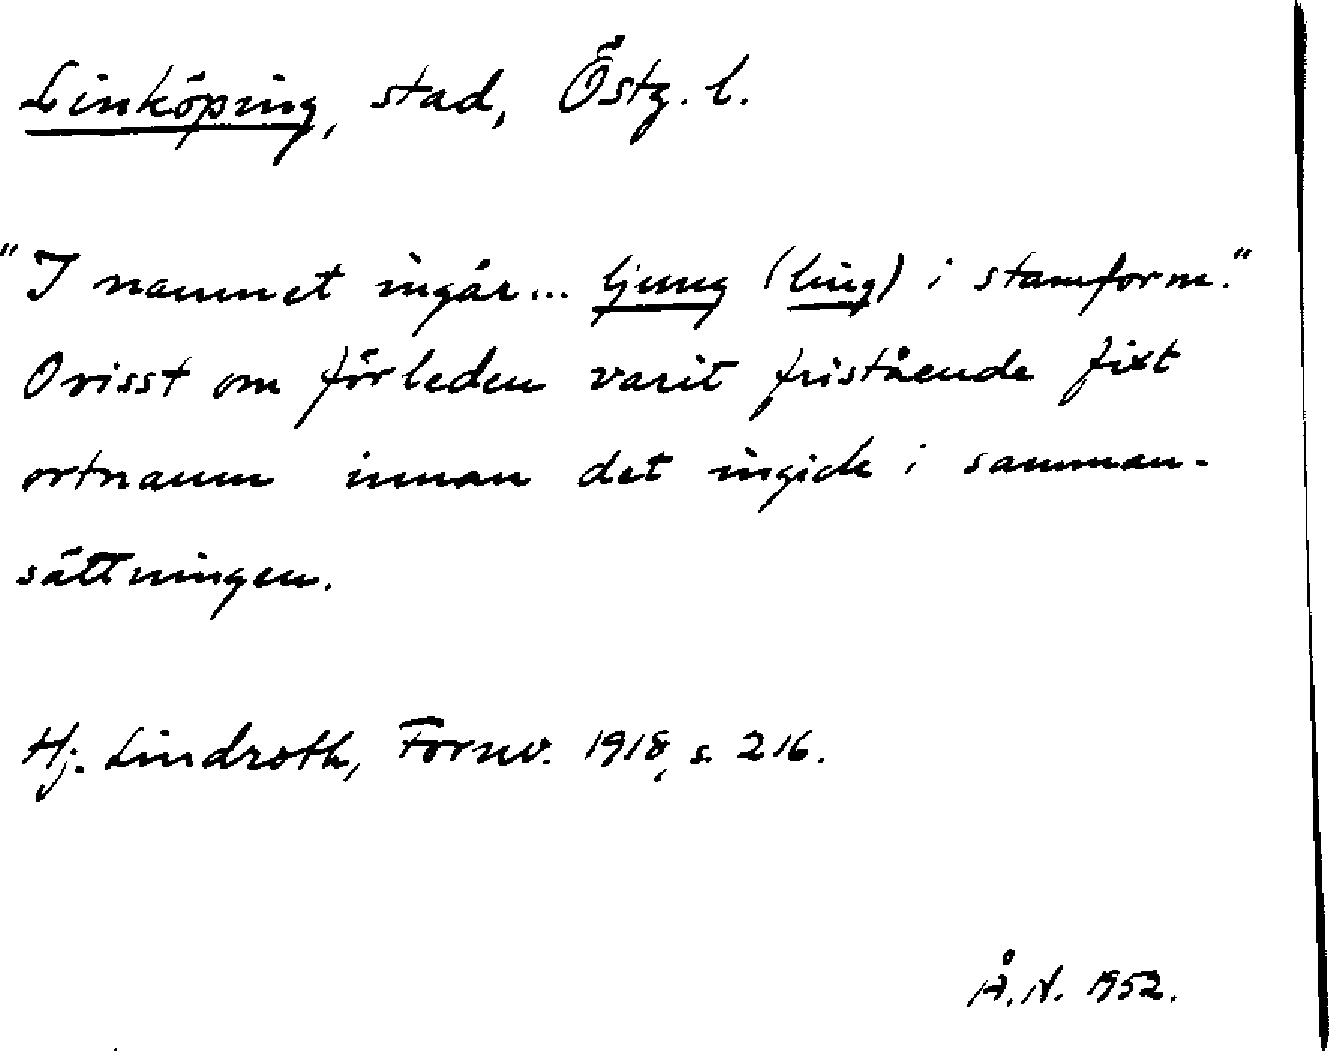 Linköping, stad, Östg. l.
"I namnet ingår... ljung (ling) i stamform."
Ovisst om förleden varit fristående fixt
ortnamn innan det ingick i samman-
sättningen.
Hj. Lindroth, Fornv. 1918, s. 216.
Å. N. 1952.